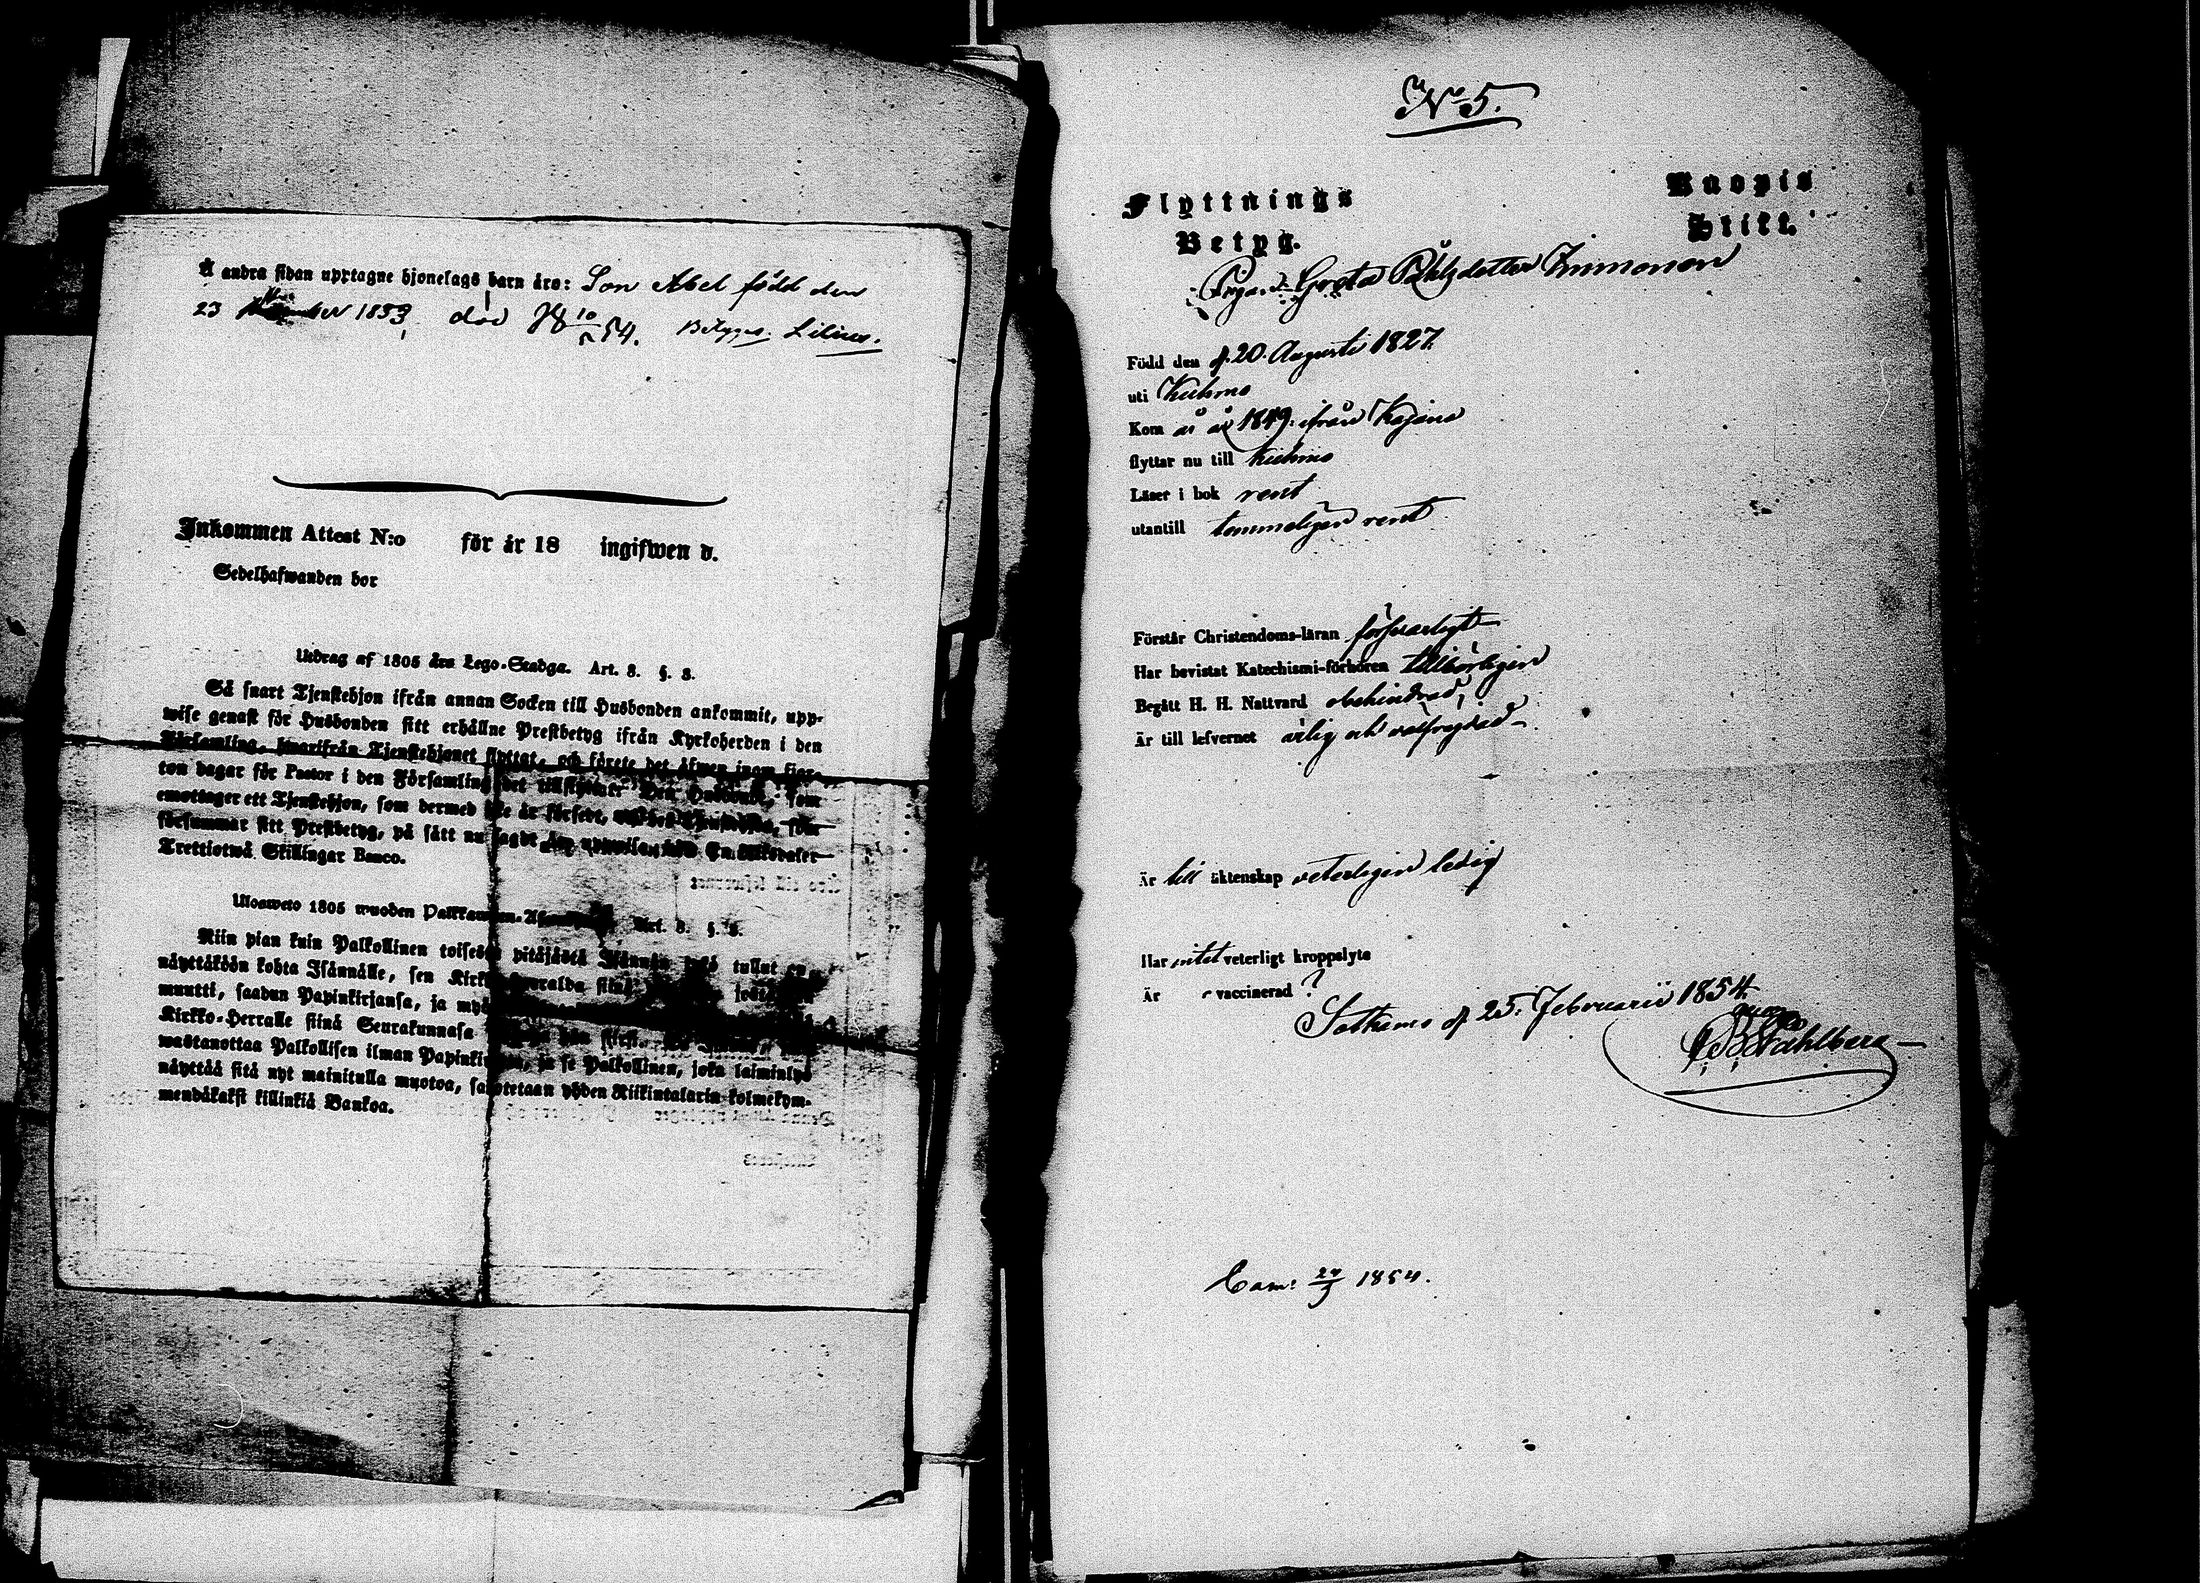 Å andra sidan upptagne hjonelags barn äro: Son Abel född den
23 1853, död 18 10/5 54. Betygas Lilius.
Inkommen Attest N:o för år 18 ingifwen d.
Sedelhafwanden bor
Utdrag af 1805 års Lego-Stadga. Art. 8. §. 8.
Så snart Tjenstehjon ifrån annan Socken till Husbonden ankommit, upp-
wise genast för Husbonden sitt erhållne Prestbetyg ifrån Kyrkoherden i den
Församling, hwarifrån Tjenstehjonet flyttat, och förete det äfwen inom fjor-
ton dagar för Pastor i den Församling det tillflyttar. Den Husbonde, som
emottager ett Tjenstehjon, som dermed icke är försedt, och det Tjenstehjon, som
försummar sitt Prestbetyg, på sätt nu sagdt är, uppwisa, böte En Riksdaler
Trettiotwå Skillingar Banco.
Ulosweto 1805 wuoden Palkkawäen-Asetuksesta Art. 8. §. 8.
Niin pian kuin Palkollinen toisesta pitäjästä Isännän tykö tullut on,
näyttäköön kohta Isännälle, sen Kirkko-Herralda siinä
muutti, saadun Papinkirjansa, ja myös
Kirkko-Herralle siinä Seurakunnasa
wastanottaa Palkollisen ilman Papinkirjaa, ja se Palkollinen, joka laiminlyö
näyttää sitä nyt mainitulla muotoa, sakotetaan yhden Riikintalarin kolmekym-
mendäkaksi killinkiä Bankoa.
No 5.
Flyttnings
Betyg.
Kuopio
Stift.
Pigan Greta Påhlsdotter Immonen
Född den d. 20. Augusti 1827.
uti Kuhmo
Kom år 1849 ifrån Kajana
flyttar nu till Kuhmo
Läser i bok rent
utantill temmeligen rent
Förstår Christendoms-läran försvarligt
Har bevistat Katechismi-förhören tillbörligen
Begått H. H. Nattvard obehindrad,
Är till lefvernet ärlig och välfrejdad
Är till äktenskap veterligen ledig
Har intet veterligt kroppslyte
Är vaccinerad ?
Sotkamo d. 25. Februarii 1854.
Stahlberg
Cam: 24/3 1854.